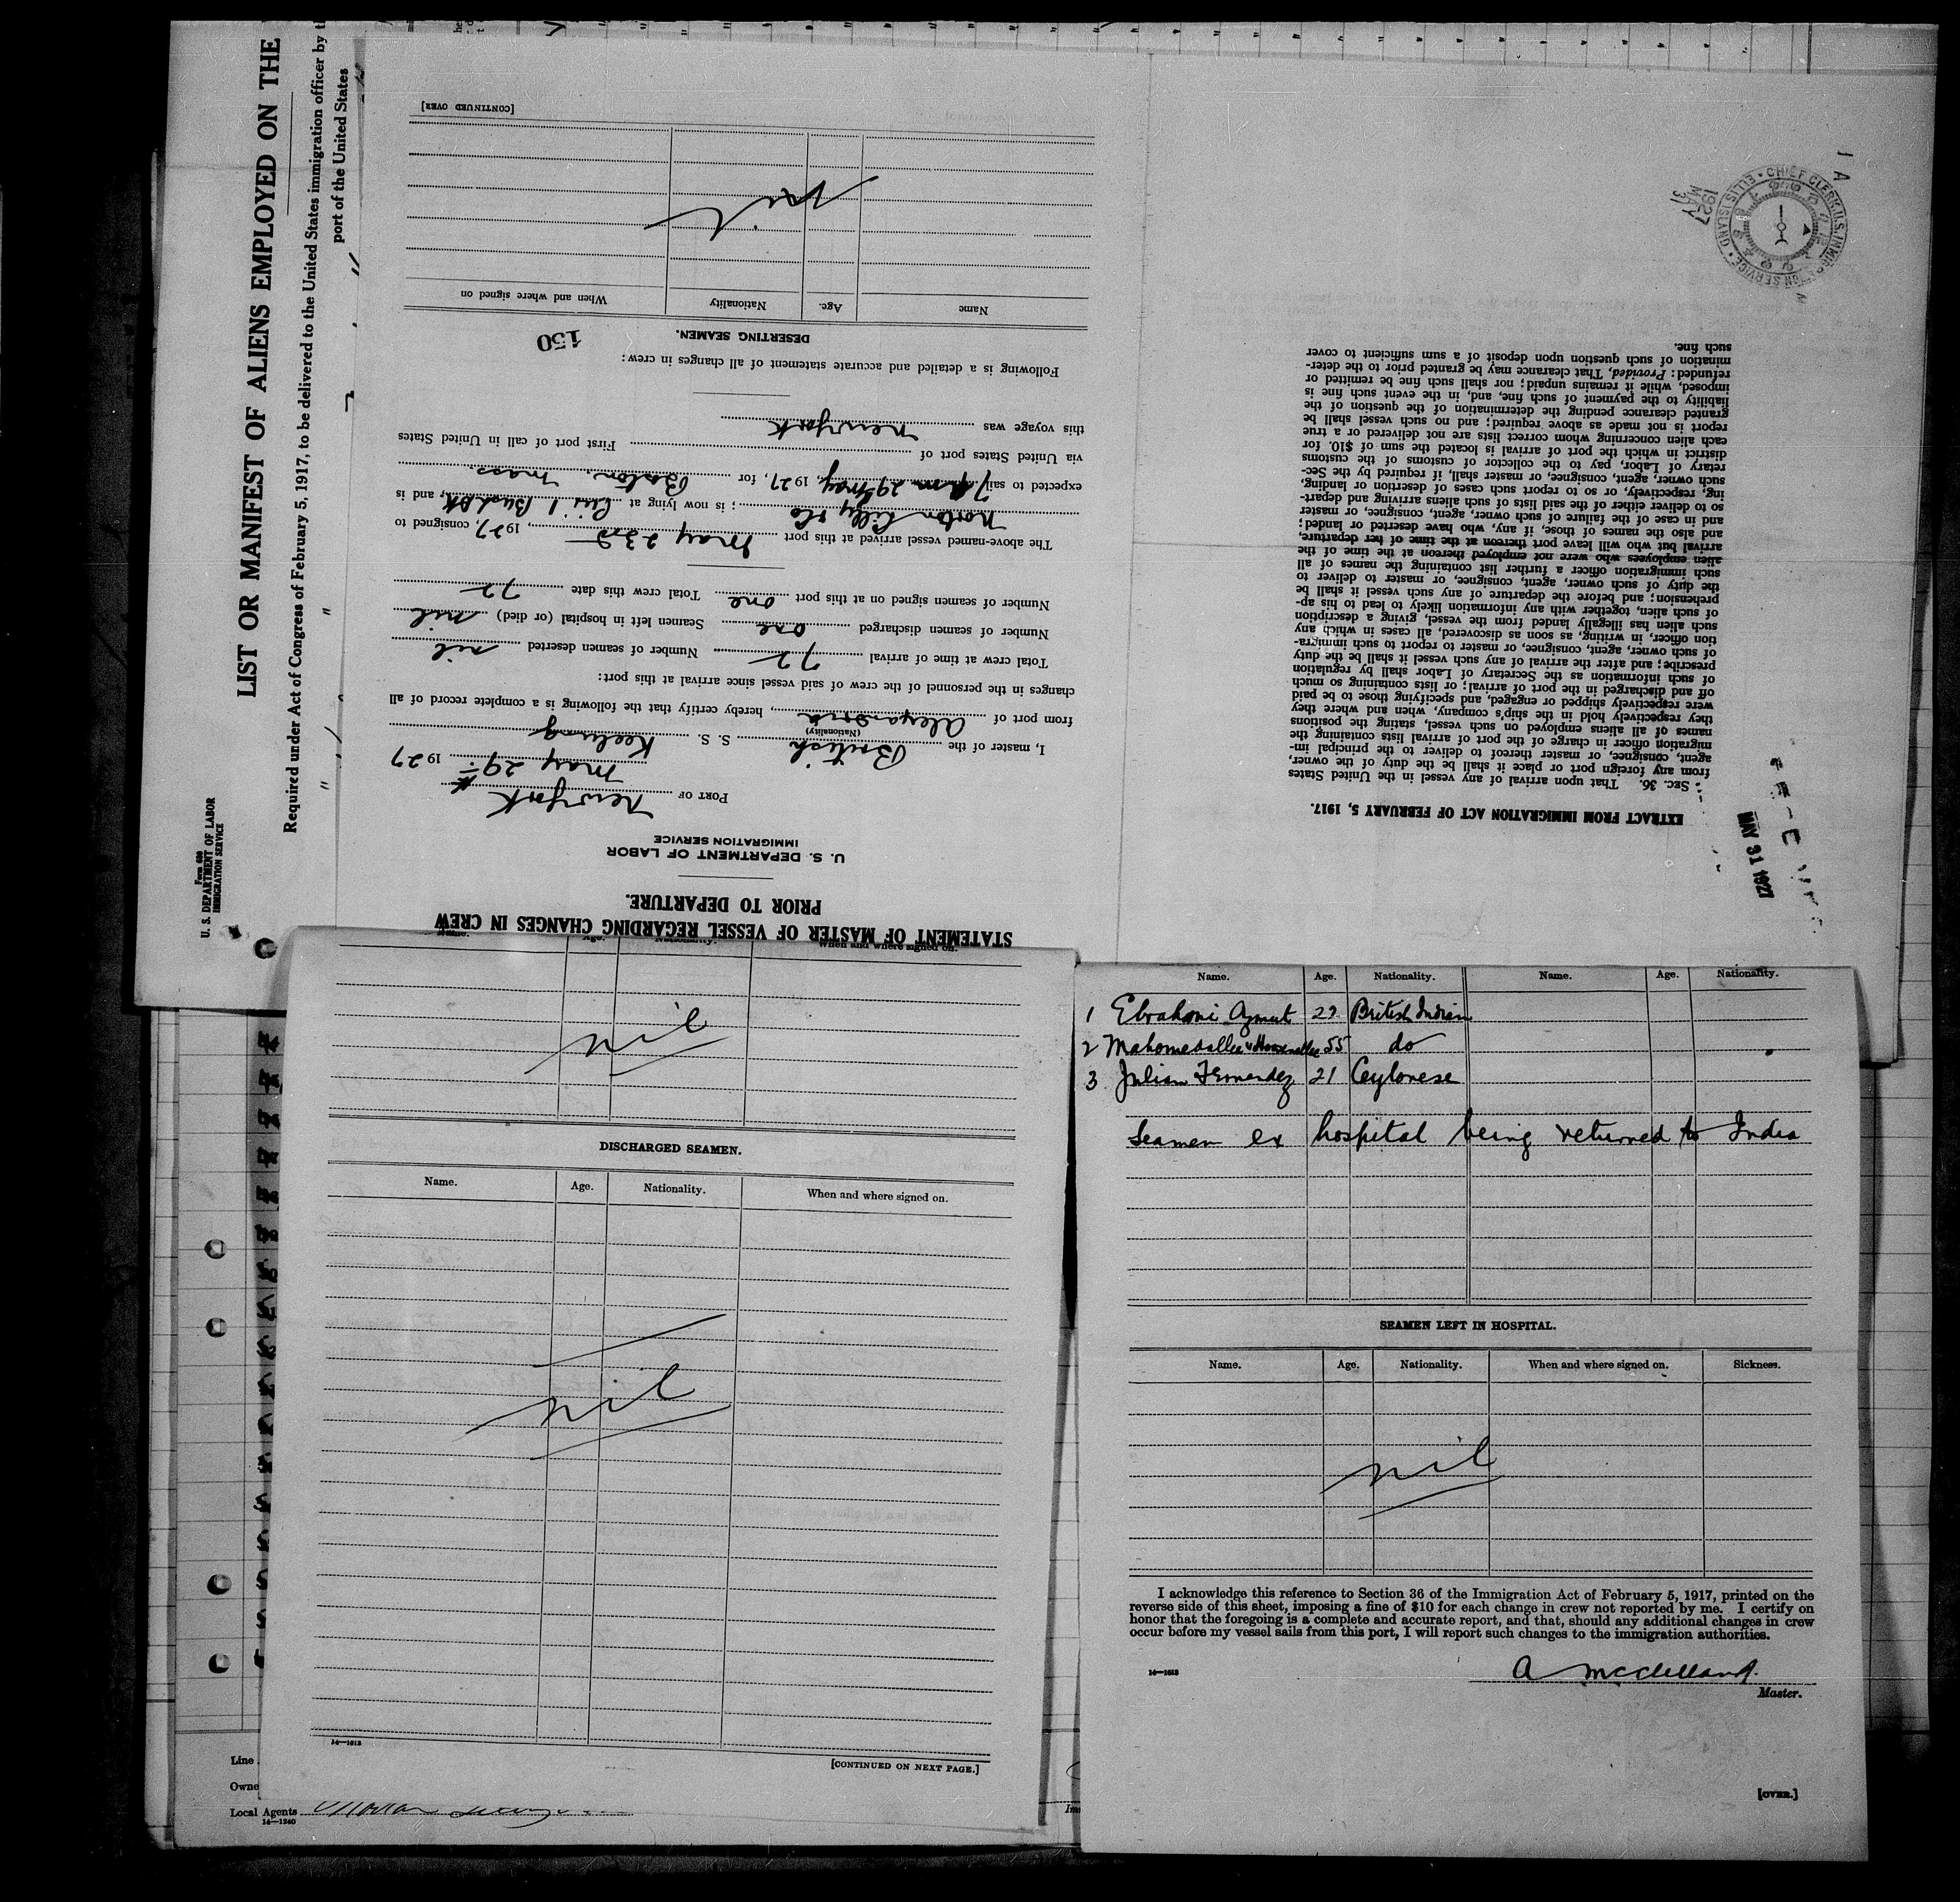 LIST OR MANIFEST OF ALIENS EMPLOYED ON THE
Required under Act of Congress of February 5, 1917, to be delivered to the United States immigration officer by
port of the United States
Form 680
U. S. DEPARTMENT OF LABOR
IMMIGRATION SERVICE
STATEMENT OF MASTER OF VESSEL REGARDING CHANGES IN CREW
PRIOR TO DEPARTURE.
U. S. DEPARTMENT OF LABOR
IMMIGRATION SERVICE
PORT OF New York
May 29th 1927
I, master of the British S. S. Keelung
(Nationality)
from port of Alexandria, hereby certify that the following is a complete record of all
changes in the personnel of the crew of said vessel since arrival at this port:
Total crew at time of arrival 72 Number of seamen deserted nil
Number of seamen discharged one Seamen left in hospital (or died) nil
Number of seamen signed on at this port one Total crew this date 72
The above-named vessel arrived at this port May 23rd, 1927, consigned to
Norton Lilly & Co; is now lying at Pier 1 Bush Dk, and is
expected to sail 7 am 29th May, 1927, for Boston, Mass.
via United States port of First port of call in United States
this voyage was New York
Following is a detailed and accurate statement of all changes in crew:
150
DESERTING SEAMEN.
Name Age. Nationality When and where signed on
nil
[CONTINUED OVER]
EXTRACT FROM IMMIGRATION ACT OF FEBRUARY 5, 1917.
SEC. 36. That upon arrival of any vessel in the United States
from any foreign port or place it shall be the duty of the owner,
agent, consignee, or master thereof to deliver to the principal im-
migration officer in charge of the port of arrival lists containing the
names of all aliens employed on such vessel, stating the positions
they respectively hold in the ship's company, when and where they
were respectively shipped or engaged, and specifying those to be paid
off and discharged in the port of arrival; or lists containing so much
of such information as the Secretary of Labor shall by regulation
prescribe; and after the arrival of any such vessel it shall be the duty
of such owner, agent, consignee, or master to report to such immigra-
tion officer, in writing, as soon as discovered, all cases in which any
such alien has illegally landed from the vessel, giving a description
of such alien, together with any information likely to lead to his ap-
prehension; and before the departure of any such vessel it shall be
the duty of such owner, agent, consignee, or master to deliver to
such immigration officer a further list containing the names of all
alien employees who were not employed thereon at the time of the
arrival but who will leave port thereon at the time of her departure,
and also the names of those, if any, who have deserted or landed;
and in case of the failure of such owner, agent, consignee, or master
so to deliver either of the said lists of such aliens arriving and depart-
ing, respectively, or so to report such cases of desertion or landing,
such owner, agent, consignee, or master shall, if required by the Sec-
retary of Labor, pay to the collector of customs of the customs
district in which the port of arrival is located the sum of $10. for
each alien concerning whom correct lists are not delivered or a true
report is not made as above required; and no such vessel shall be
granted clearance pending the determination of the question of the
liability to the payment of such fine, and, in the event such fine is
imposed, while it remains unpaid; nor shall such fine be remitted or
refunded: Provided, That clearance may be granted prior to the deter-
mination of such question upon deposit of a sum sufficient to cover
such fine.
CHIEF CLERK, U.S. IMMIGRATION SERVICE • ELLIS ISLAND
1927
MAY
31
MAY 31 1927
Name. Age. Nationality. When and where signed on.
nil
DISCHARGED SEAMEN.
Name. Age. Nationality. When and where signed on.
nil
14—1613
[CONTINUED ON NEXT PAGE.]
Line
Owne
Local Agents
14—1240
Name. Age. Nationality. Name. Age. Nationality.
1 29 British Indian
2 55 do
3 Julian Fernandez 21 Ceylonese
Seamen ex hospital being returned to India
SEAMEN LEFT IN HOSPITAL.
Name. Age. Nationality. When and where signed on. Sickness.
nil
I acknowledge this reference to Section 36 of the Immigration Act of February 5, 1917, printed on the
reverse side of this sheet, imposing a fine of $10 for each change in crew not reported by me. I certify on
honor that the foregoing is a complete and accurate report, and that, should any additional changes in crew
occur before my vessel sails from this port, I will report such changes to the immigration authorities.
14—1613
A McClelland.
Master.
[OVER.]